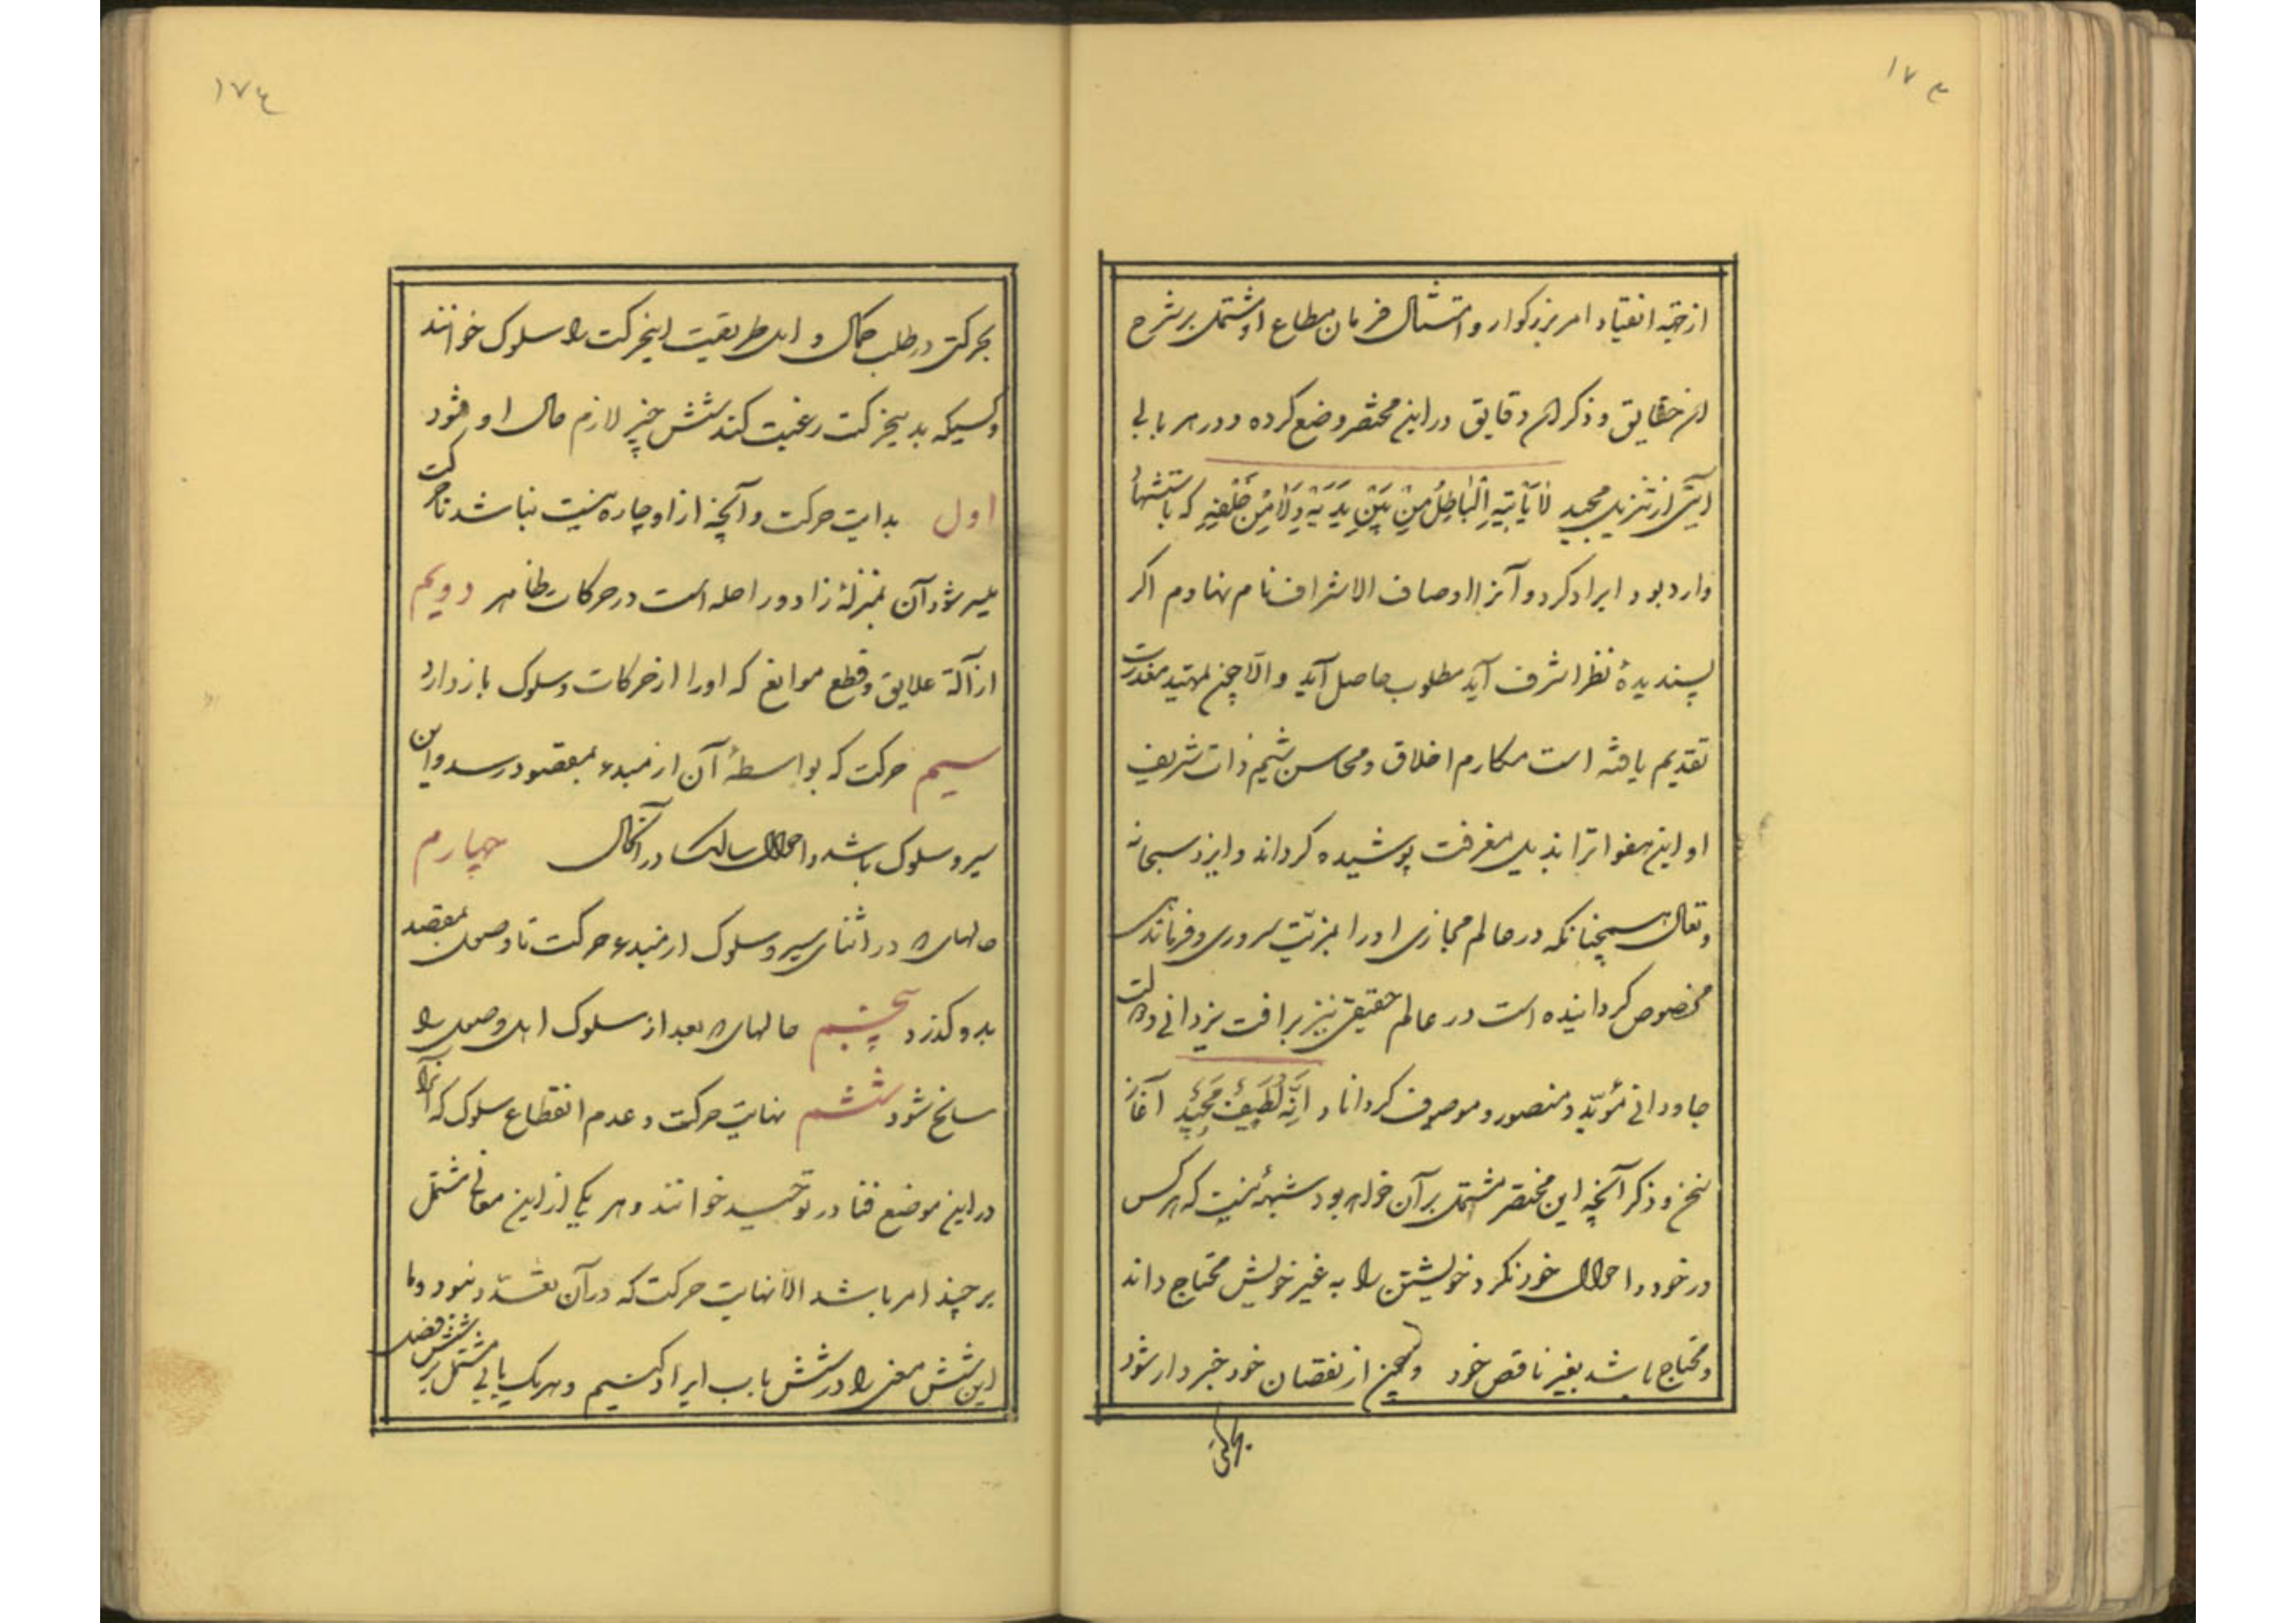 ١٧٣
از جهة انقیاد امر بزرگوار و امتثال فرمان مطاع او مشتمل بر شرح
ان حقایق و ذکر ان دقایق در این مختصر وضع کرده و در هر بابی
آیتی از تنزیل مجید لَا یَأْتِیهِ الْبَاطِلُ مِنْ بَیْنِ یَدَیْهِ وَلَا مِنْ خَلْفِهِ که باستشهاد
وارد بود ایراد کرد و آنرا اوصاف الاشراف نام نهادم اگر
پسندیدهٔ نظر اشرف آید مطلوب حاصل آید والّا چون تمهید معذرت
تقدیم یافته است مکارم اخلاق و محاسن شیم ذات شریف
او این هفواترا بذیل مغفرت پوشیده گرداند و ایزد سبحانه
و تعالی همچنانکه در عالم مجازی او را بمزیّت سروری و فرماندهی
مخصوص گردانیده است در عالم حقیقی نیز برافت یزدانی و دولت
جاودانی مؤیّد و منصور و موصوف گرداناد اِنَّهُ لَطِیفٌ مُجِیبٌ آغاز
سخن و ذکر آنچه این مختصر مشتمل بر آن خواهد بود شبهه نیست که هر کس
در خود و احوال خود نگرد خویشتن را به غیر خویش محتاج داند
و محتاج باشد بغیر ناقص خود و چون از نقصان خود خبردار شود
١٧٤
بحرکتی در طلب کمال و اهل طریقت اینحرکت را سلوک خوانند
و کسیکه بدینحرکت رغبت کند شش چیز لازم حال او شود
اول بدایت حرکت و آنچه از او چاره نیست نباشد تا حرکت
میسر شود آن بمنزلهٔ زاد و راحله است در حرکات ظاهر دویم
ازالة علایق و قطع موانع که او را از حرکات و سلوک باز دارد
سیم حرکت که بواسطهٔ آن از مبدء بمقصود رسد و این
سیر و سلوک باشد و احوال سالک در آنحال چهارم
حالهائی در اثنای سیر و سلوک از مبدء حرکت تا وصول بمقصد
بدو گذرد پنجم حالهائی بعد از سلوک اهل وصول را
سانح شود ششم نهایت حرکت و عدم انقطاع سلوک که آنرا
در این موضع فنا در توحید خوانند و هر یکی از این معانی مشتمل
بر چند امر باشد الّا نهایت حرکت که در آن تعدّد نبود و ما
این شش معنی را در شش باب ایراد کنیم و هر یک بابی مشتمل بر شش فصل